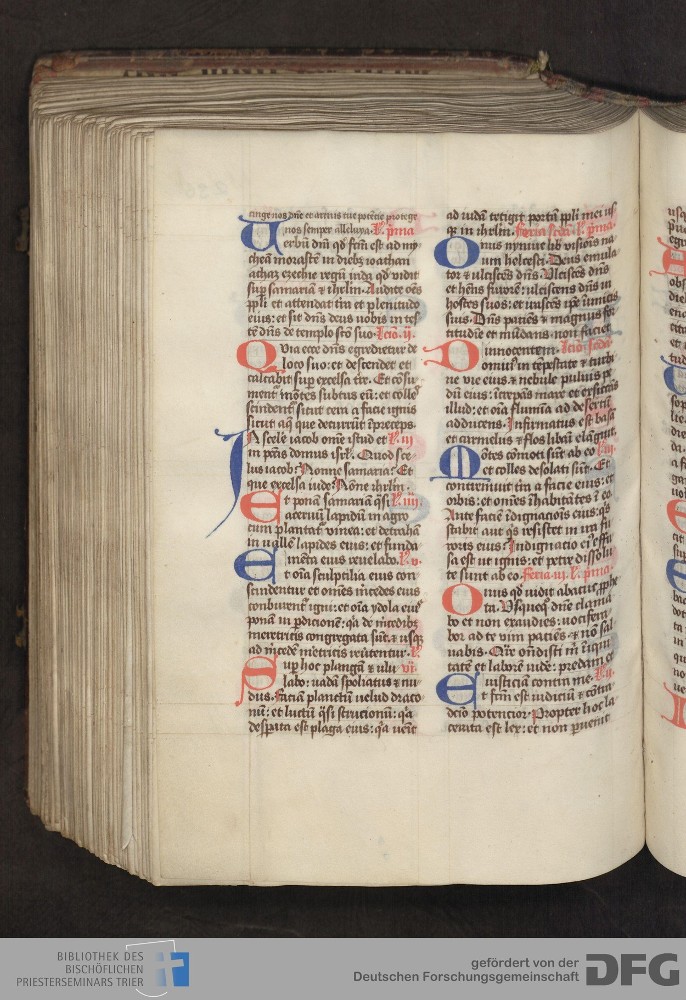 nos semper alleluya. l. p̄ma
Uerbū dn̄i qd̄ fc̄m est ad my
cheā morastē in dieb3 ioathan
achaz ezechie regū iuda qd̄ vidit
sup̄ samariā ⁊ ihrl̄m. Audite oēs
ppl̄i et attendat tr̄a et plenitudo
eius: et sit dn̄s deus uobis in tes
tē dn̄s de templo sc̄o suo. Lc̄io. ij.
Quia ecce dn̄s egredietur de
loco suo: et descendet et
calcabit sup̄ excelsa tr̄e. Et cōsu
ment̄ mōtes subtus eū: et valles
scindent̄ sicut cera a facie ignis
sicut aq̄ que decurrūt ī preceps.
In scele iacob omē istud et l. iij
in pc̄tis domus isrl̄. Quod sce
lus iacob: Nonne samaria: Et
que excelsa iude: Nōne ihrl̄m.
Et ponā samariā q̄si l. iiij.
aceruū lapidū in agro
cum plantat̄ vinea: et detrahā
in uallē lapides eius: et funda
menta eius reuelabo. l. v.
Et oīa sculptilia eius con
scindentur et omēs mercedes eius
conburent̄ igni: et oīa ydola eiꝰ
ponā in p̄dicionē: q̄a de m̄cedib3
meretricis congregata sūt. ⁊ usq3
ad m̄cedē m̄etricis reūtentur. l.
Sup̄ hoc plangā ⁊ ulu vi.
labo: uadā spoliatus ⁊ nu
dus. faciā planctū uelud draco
nū: et luctū q̄si strucionū: q̄a
desp̄ata est plaga eius: q̄a ueīt
ad iudā tetigit portā ppl̄i mei us
q3 in ihrl̄m. Feria sc̄da. l. p̄ma.
Onus nyniue lib̄ visiōis na
um helcesei. Deus emula
tor ⁊ ulciscēs dn̄s. Ulciscēs dn̄s
et hn̄s furorē: ulciscens dn̄s in
hostes suos: et irascēs ip̄e īimicis
suis. Dn̄s paciēs ⁊ magnus for
titudīe et mūdans non faciet
innocentem. Lc̄io sc̄da.
Dominꝰ in tēpestate ⁊ turbi
ne vie eius ⁊ nebule puluis pe
dū eius: īcrepās mare et exsiccās
illud: et oīa flumīa ad desertū
adducens. Infirmatus est basā
et carmelus ⁊ flos libāi elāguit.
Mōtes cōmoti sūt ab eo l. iij.
et colles desolati sūt. Et
contremuit tr̄a a facie eius: et
orbis: et omēs īhabitātes ī eo
Ante faciē īdignacōis eius: q̄s
stabit aut q̄s resistet in ira fu
roris eius: Indignacio eiꝰ effu
sa est ut ignis: et petre dissolu
te sunt ab eo. Feria. iij. l. p̄ma.
Onus qd̄ uidit abacuc pph̄e
ta. Usq̄ueq3 dn̄e clama
bo et non exaudies: uocifera
bor ad te vim paciēs ⁊ nō sal
uabis. Qr̄e oñdisti m̄ iniqui
tatē et laborē uidē: predam et
iusticiā contra me. l. ij.
Et fc̄m est iudiciū ⁊ cōtra
dcīo potencior. Propter hoc la
cerata est lex: et non puenit
BIBLIOTHEK DES
BISCHÖFLICHEN
PRIESTERSEMINARS TRIER
gefördert von der
Deutschen Forschungsgemeinschaft
DFG